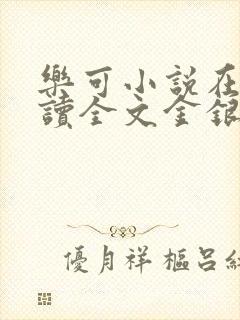 樂可小說在
讀全文金銀
優月祥樞呂